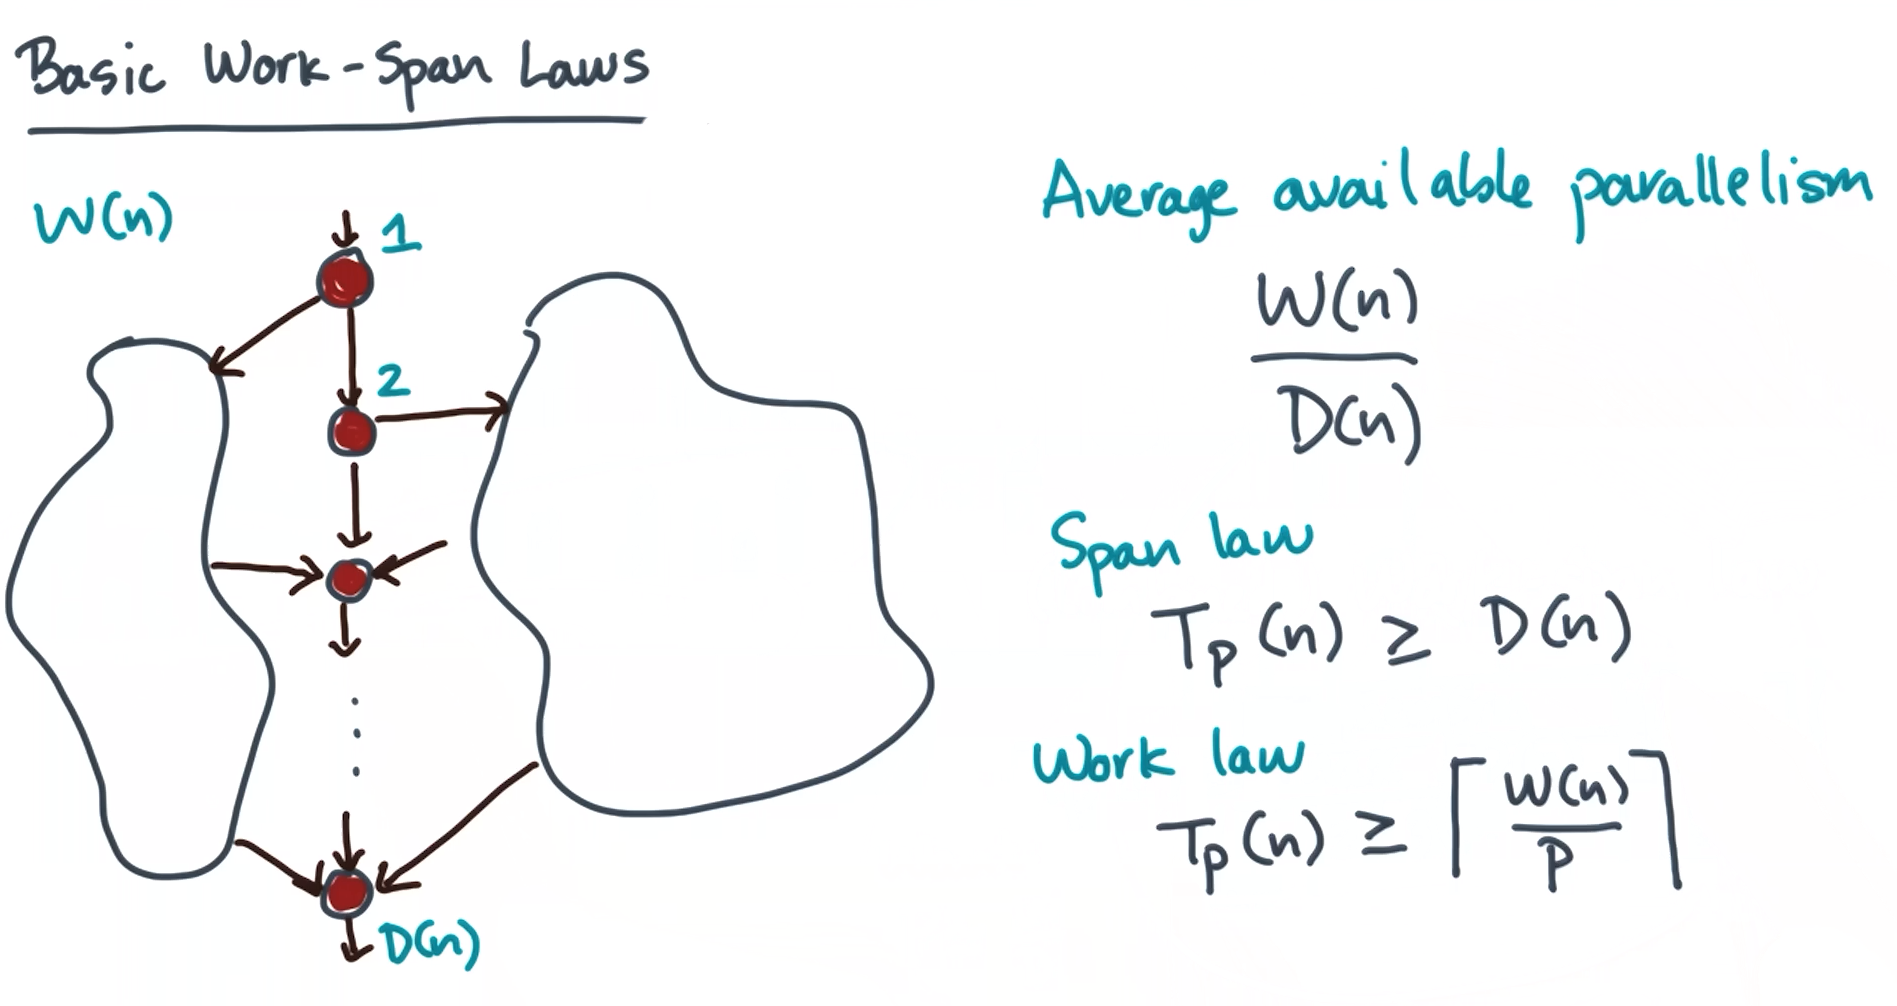 Basic Work-Span Laws
W(n)
1
2
D(n)
Average available parallelism
W(n)
D(n)
Span law
Tp(n) ≥ D(n)
Work law
Tp(n) ≥ ⌈W(n)/P⌉